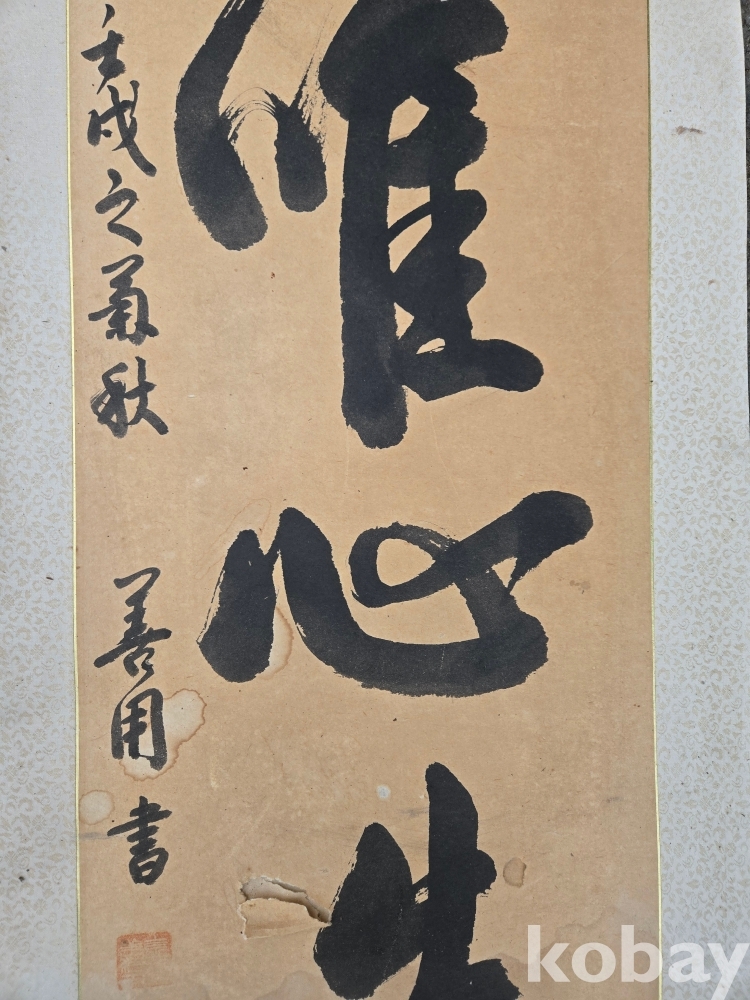 唯心
壬戌之菊秋 善用書
kobay